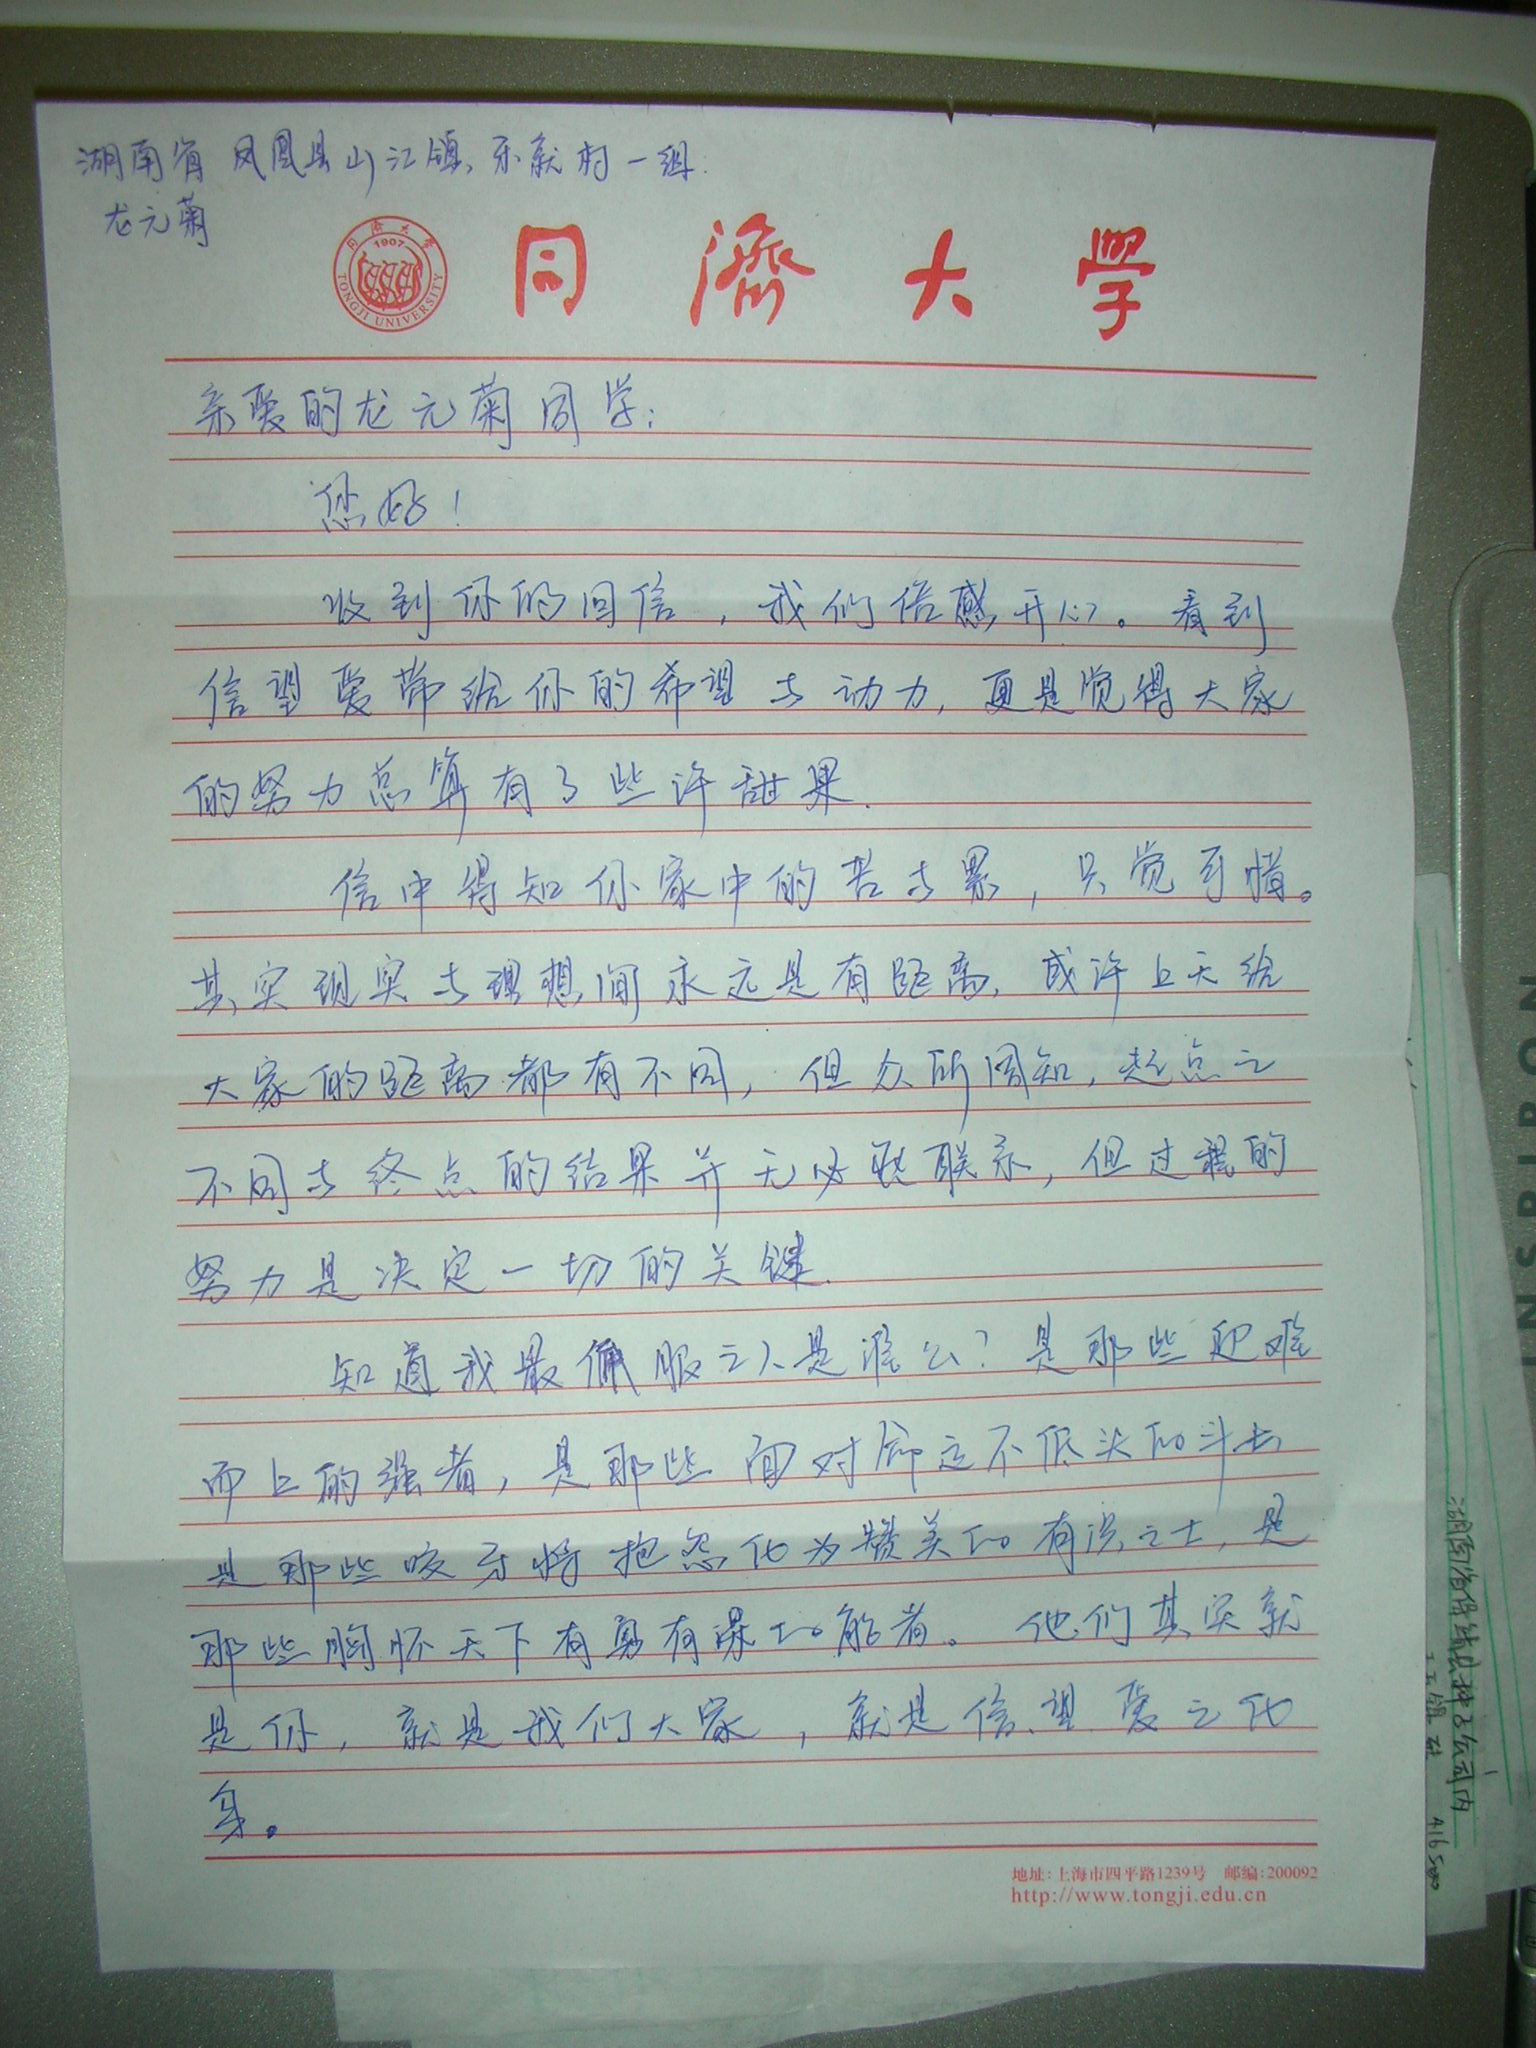 湖南省凤凰县山江镇,乐就村一组.
龙元菊
同濟大学
1907
TONGJI UNIVERSITY
亲爱的龙元菊同学:
您好!
收到你的回信,我们倍感开心。看到
信望爱带给你的希望与动力,更是觉得大家
的努力总算有了些许甜果.
信中得知你家中的苦与累,只觉可惜。
其实现实与理想间永远是有距离,或许上天给
大家的距离都有不同,但众所周知,起点之
不同与终点的结果并无必然联系,但过程的
努力是决定一切的关键.
知道我最佩服之人是谁么?是那些迎难
而上的强者,是那些面对命运不低头的斗士
是那些咬牙将抱怨化为赞美的有识之士,是
那些胸怀天下有勇有谋的能者。他们其实就
是你,就是我们大家,就是信望爱之化
身。
地址:上海市四平路1239号 邮编:200092
http://www.tongji.edu.cn
INSPIRON
种子公司内
416500